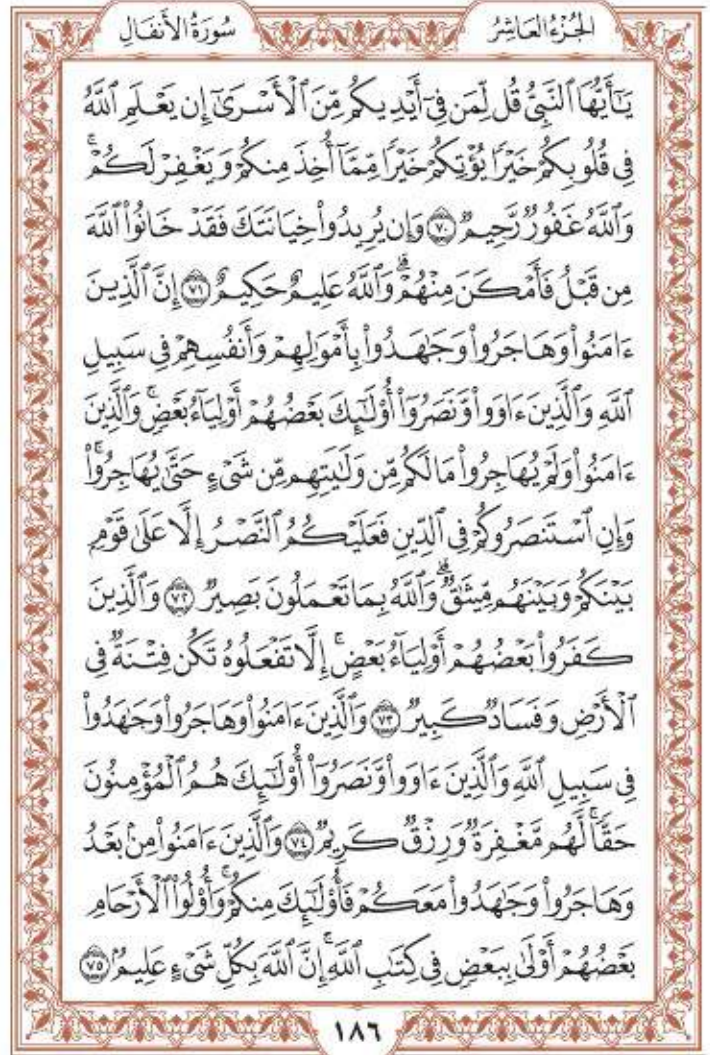 الجُزْءُ العَاشِرُ
سُورَةُ الأَنفَالِ
يَٰٓأَيُّهَا ٱلنَّبِيُّ قُل لِّمَن فِيٓ أَيْدِيكُم مِّنَ ٱلْأَسْرَىٰٓ إِن يَعْلَمِ ٱللَّهُ
فِي قُلُوبِكُمْ خَيْرًا يُؤْتِكُمْ خَيْرًا مِّمَّآ أُخِذَ مِنكُمْ وَيَغْفِرْ لَكُمْۚ
وَٱللَّهُ غَفُورٌ رَّحِيمٌ ۝٧٠ وَإِن يُرِيدُواْ خِيَانَتَكَ فَقَدْ خَانُواْ ٱللَّهَ
مِن قَبْلُ فَأَمْكَنَ مِنْهُمْۗ وَٱللَّهُ عَلِيمٌ حَكِيمٌ ۝٧١ إِنَّ ٱلَّذِينَ
ءَامَنُواْ وَهَاجَرُواْ وَجَٰهَدُواْ بِأَمْوَٰلِهِمْ وَأَنفُسِهِمْ فِي سَبِيلِ
ٱللَّهِ وَٱلَّذِينَ ءَاوَواْ وَّنَصَرُوٓاْ أُوْلَٰٓئِكَ بَعْضُهُمْ أَوْلِيَآءُ بَعْضٍۚ وَٱلَّذِينَ
ءَامَنُواْ وَلَمْ يُهَاجِرُواْ مَا لَكُم مِّن وَلَٰيَتِهِم مِّن شَيْءٍ حَتَّىٰ يُهَاجِرُواْۚ
وَإِنِ ٱسْتَنصَرُوكُمْ فِي ٱلدِّينِ فَعَلَيْكُمُ ٱلنَّصْرُ إِلَّا عَلَىٰ قَوْمِۭ
بَيْنَكُمْ وَبَيْنَهُم مِّيثَٰقٌۗ وَٱللَّهُ بِمَا تَعْمَلُونَ بَصِيرٌ ۝٧٢ وَٱلَّذِينَ
كَفَرُواْ بَعْضُهُمْ أَوْلِيَآءُ بَعْضٍۚ إِلَّا تَفْعَلُوهُ تَكُن فِتْنَةٌ فِي
ٱلْأَرْضِ وَفَسَادٌ كَبِيرٌ ۝٧٣ وَٱلَّذِينَ ءَامَنُواْ وَهَاجَرُواْ وَجَٰهَدُواْ
فِي سَبِيلِ ٱللَّهِ وَٱلَّذِينَ ءَاوَواْ وَّنَصَرُوٓاْ أُوْلَٰٓئِكَ هُمُ ٱلْمُؤْمِنُونَ
حَقًّاۚ لَّهُم مَّغْفِرَةٌ وَرِزْقٌ كَرِيمٌ ۝٧٤ وَٱلَّذِينَ ءَامَنُواْ مِنۢ بَعْدُ
وَهَاجَرُواْ وَجَٰهَدُواْ مَعَكُمْ فَأُوْلَٰٓئِكَ مِنكُمْۚ وَأُوْلُواْ ٱلْأَرْحَامِ
بَعْضُهُمْ أَوْلَىٰ بِبَعْضٍ فِي كِتَٰبِ ٱللَّهِۚ إِنَّ ٱللَّهَ بِكُلِّ شَيْءٍ عَلِيمُۢ ۝٧٥
١٨٦